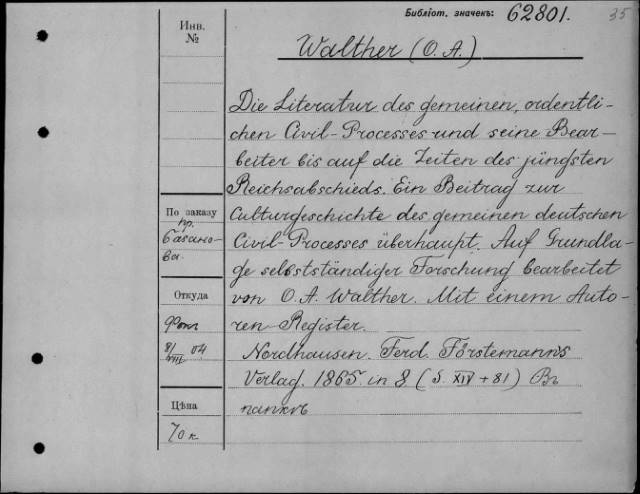 Библіот. значекъ: 62801.
35
Инв.
№
Walther (O. A.)
Die Literatur des gemeinen, ordentli-
chen Civil-Processes und seine Bear-
beiter bis auf die Zeiten des jüngsten
Reichsabschieds. Ein Beitrag zur
Culturgeschichte des gemeinen deutschen
Civil-Processes überhaupt. Auf Grundla-
ge selbstständiger Forschung bearbeitet
von O. A. Walther. Mit einem Auto-
ren-Register.
Nordhausen. Ferd. Förstemann's
Verlag. 1865. in 8 (S. XIV + 81) Въ
папкѣ
По заказу
пр.
Базано-
ва.
Откуда
8/VIII 04
Цѣна
70 к